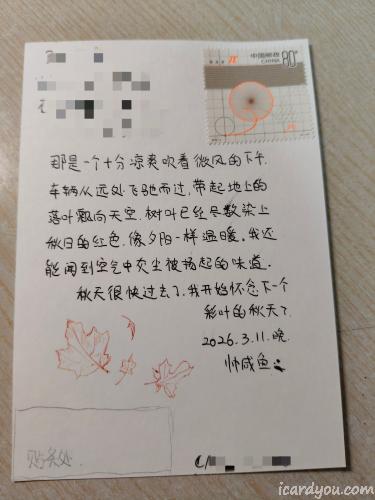 中国邮政
CHINA
80分
π
那是一个十分凉爽吹着微风的下午.
车辆从远处飞驰而过,带起地上的
落叶飘向天空.树叶已经尽数染上
秋日的红色,像夕阳一样温暖。我还
能闻到空气中灰尘被扬起的味道.
秋天很快过去了.我开始怀念下一个
彩叶的秋天了.
2026.3.11.晚.
帅咸鱼
贴条处.
icardyou.com